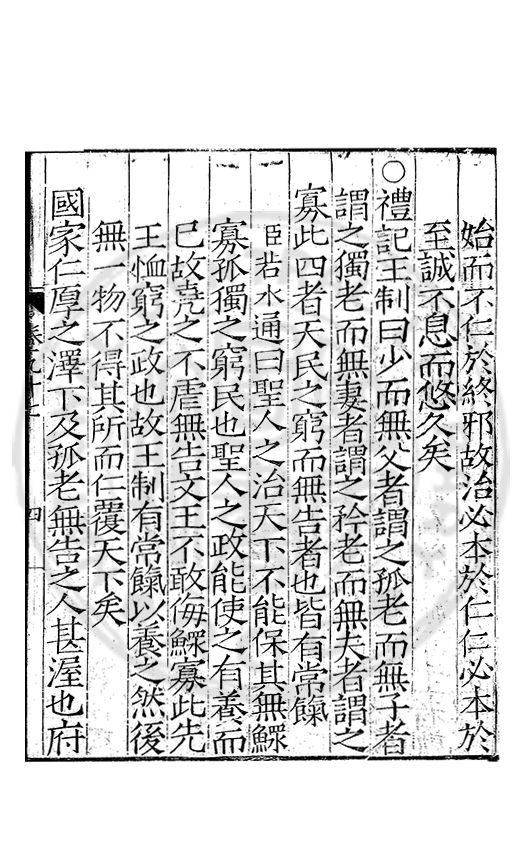 始而不仁於終邪故治必本於仁仁必本於
至誠不息而悠久矣
○禮記王制曰少而無父者謂之孤老而無子者
謂之獨老而無妻者謂之矜老而無夫者謂之
寡此四者天民之窮而無告者也皆有常餼
臣若水通曰聖人之治天下不能保其無鰥
寡孤獨之窮民也聖人之政能使之有養而
已故堯之不虐無告文王不敢侮鰥寡此先
王恤窮之政也故王制有常餼以養之然後
無一物不得其所而仁覆天下矣
國家仁厚之澤下及孤老無告之人甚渥也府
四